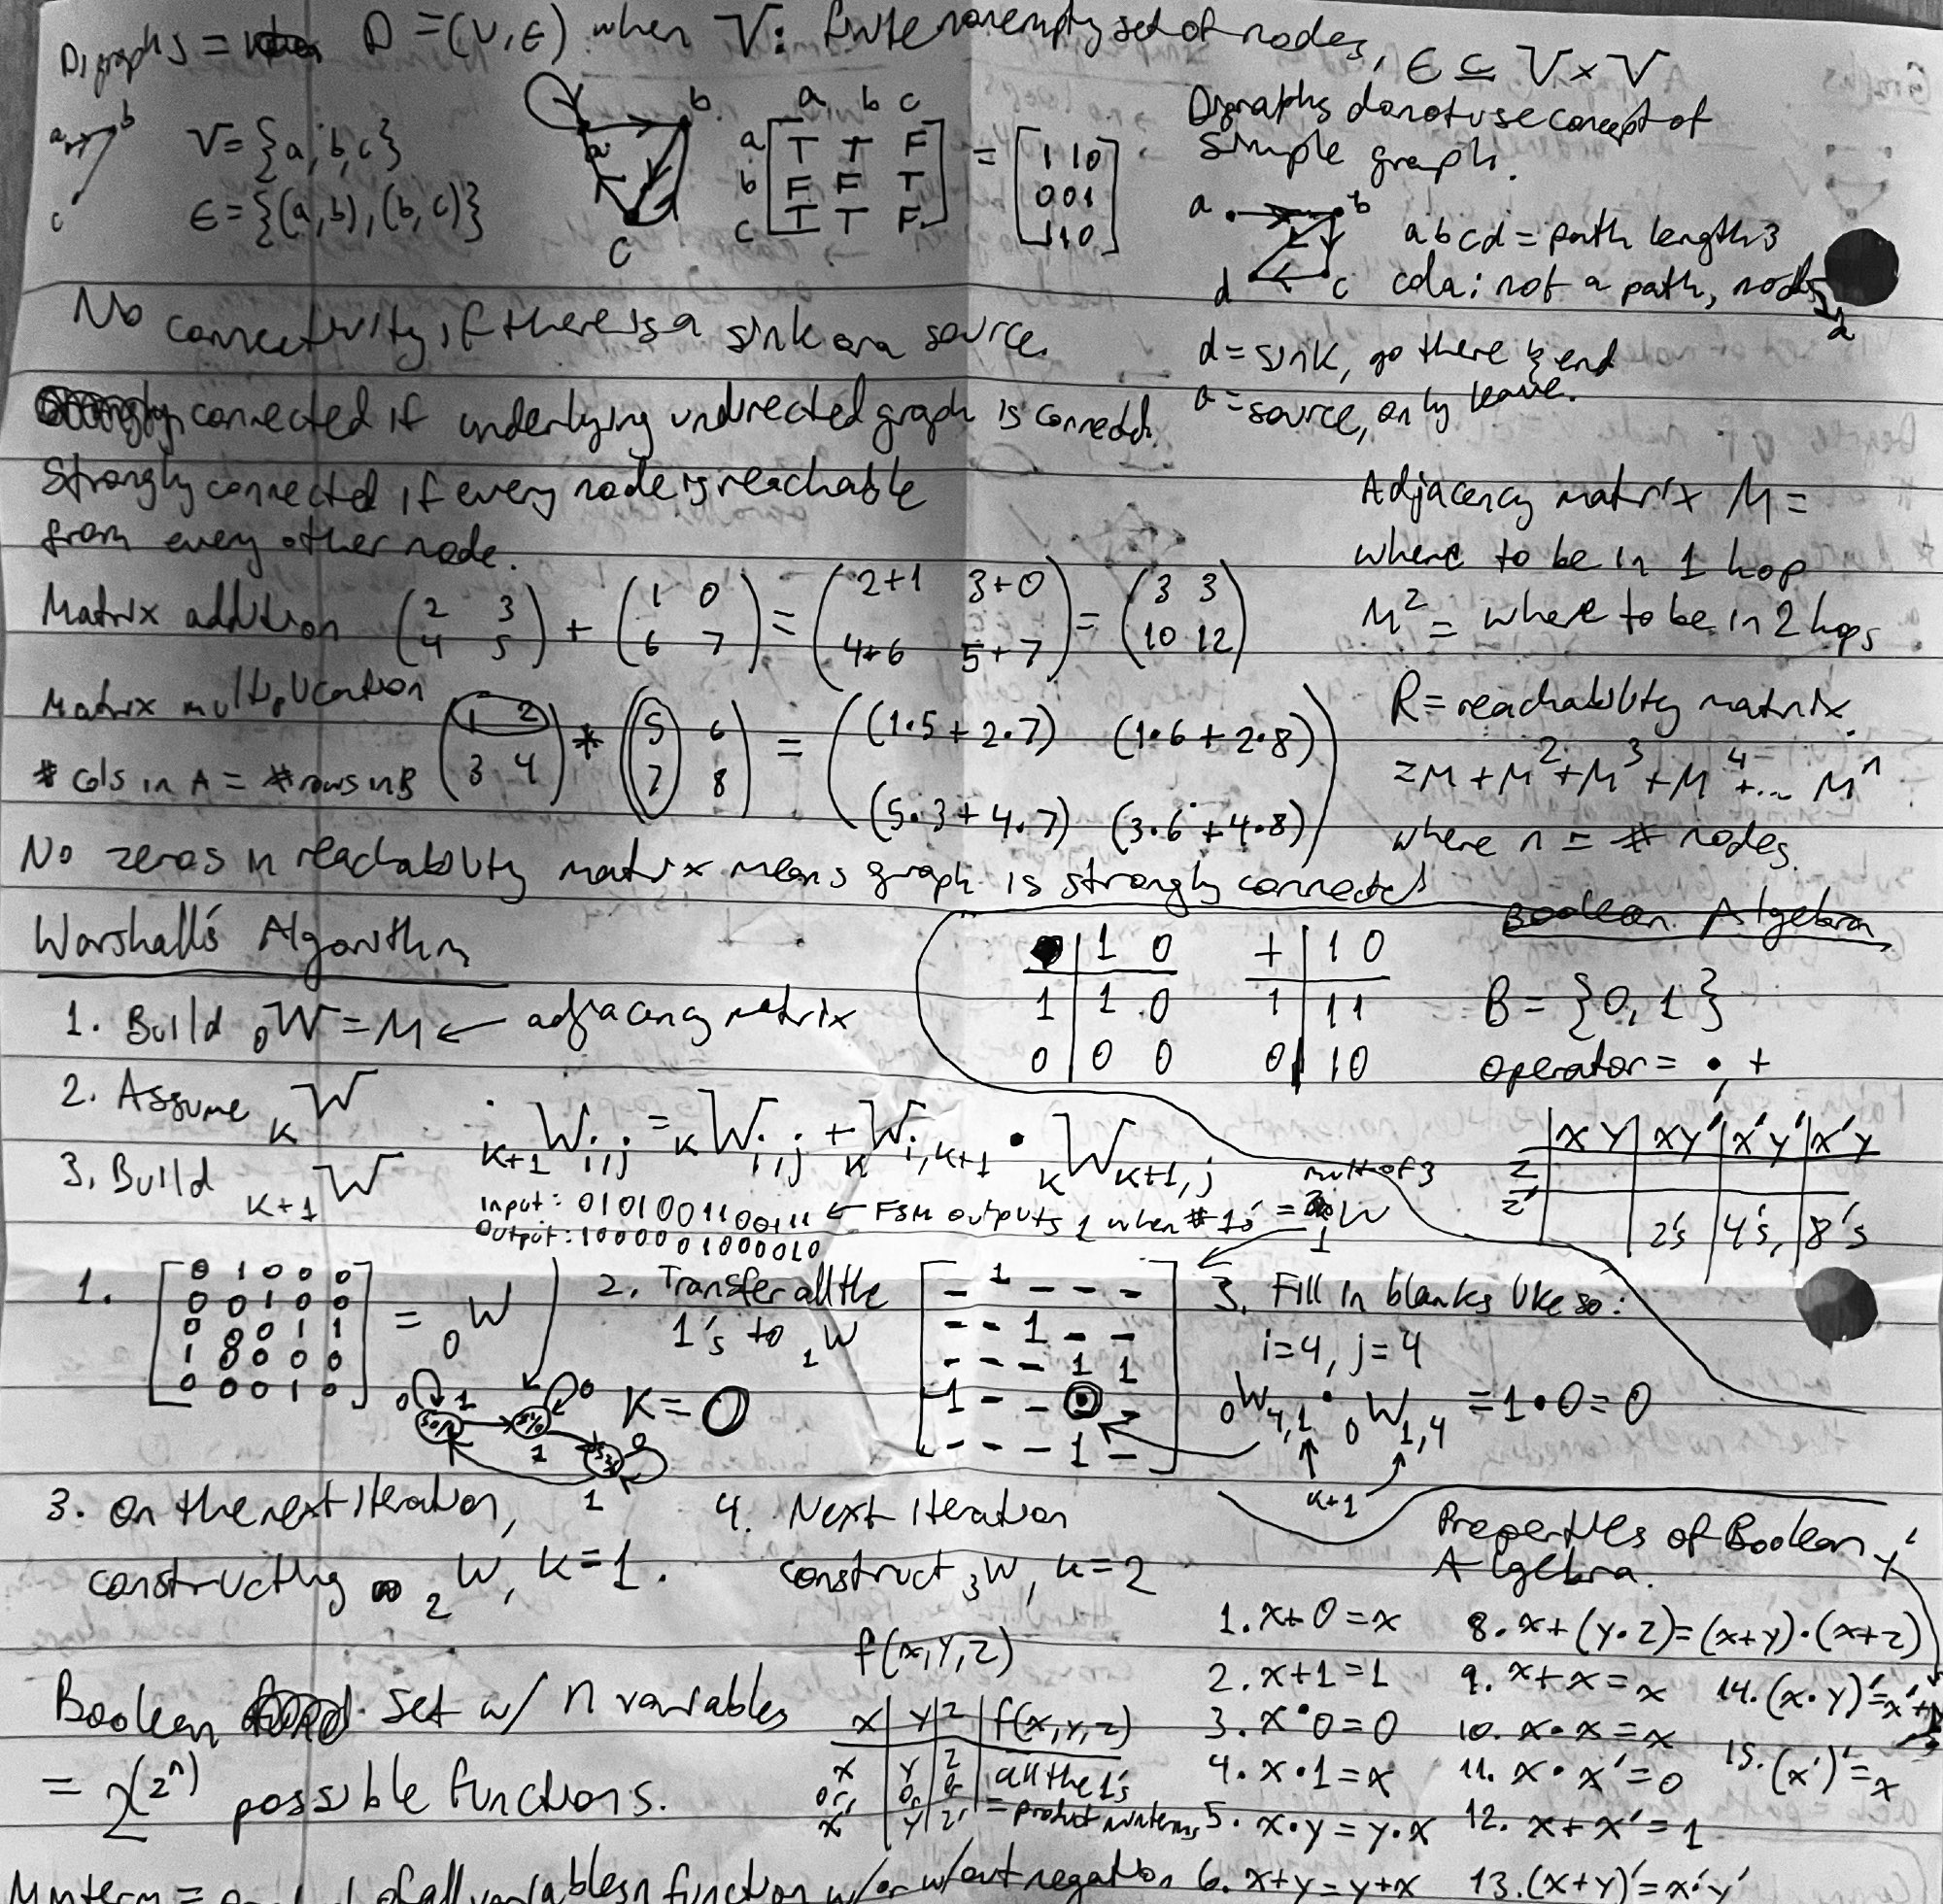 Digraphs = D = (V, E) when V: finite nonempty set of nodes, E ⊆ V × V
a b c
V = {a, b, c}
E = {(a, b), (b, c)}
a b c
a b c
a T T F
b F F T
c T T F
= 1 1 0
0 0 1
1 1 0
Digraphs do not use concept of
simple graph.
a b c d
abcd = path length 3
cda: not a path, node
d = sink, go there & end
a = source, only leave.
No connectivity if there is a sink or a source.
connected if underlying undirected graph is connectd.
Strongly connected if every node is reachable
from every other node.
Adjacency matrix M =
where to be in 1 hop
M² = where to be in 2 hops
Matrix addition (2 3 4 5) + (1 0 6 7) = (2+1 3+0 4+6 5+7) = (3 3 10 12)
Matrix multiplication
# cols in A = # rows in B
(1 2 3 4) * (5 6 7 8) = ((1·5 + 2·7) (1·6 + 2·8)
(5·3 + 4·7) (3·6 + 4·8))
R = reachability matrix
= M + M² + M³ + M⁴ + ... Mⁿ
where n = # nodes.
No zeros in reachability matrix means graph is strongly connected
Boolean Algebra
Warshall's Algorithm
• | 1 0
1 | 1 0
0 | 0 0
+ | 1 0
1 | 1 1
0 | 1 0
B = {0, 1}
operator = •, +
1. Build ₀W = M ← adjacency matrix
2. Assume ₖW
3. Build ₖ₊₁W
ₖ₊₁Wᵢ,ⱼ = ₖWᵢ,ⱼ + ₖWᵢ,ₖ₊₁ • ₖWₖ₊₁,ⱼ
X Y | XY' | X'Y' | X'Y
Z
Z'
2's | 4's, | 8's
mult of 3
Input: 0101001100111 ← FSM outputs 1 when # 1s =
Output: 10000001000010
₁W
1.
0 1 0 0 0
0 0 1 0 0
0 0 0 1 1
1 0 0 0 0
0 0 0 1 0
= ₀W
2. Transfer all the
1's to ₁W
- 1 - - -
- - 1 - -
- - - 1 1
1 - - 0 -
- - - 1 -
3. Fill in blanks like so:
i=4, j=4
₀W₄,₁ • ₀W₁,₄ = 1 • 0 = 0
k+1
0 1 0 1 0 1
K = 0
3. On the next iteration,
constructing ₂W, k=1.
4. Next iteration
construct ₃W, k=2
Properties of Boolean
Algebra.
1. x + 0 = x
2. x + 1 = 1
3. x • 0 = 0
4. x • 1 = x
5. x • y = y • x
6. x + y = y + x
8. x + (y • z) = (x + y) • (x + z)
9. x + x = x
10. x • x = x
11. x • x' = 0
12. x + x' = 1
13. (x + y)' = x' • y'
14. (x • y)' = x' + y'
15. (x')' = x
Boolean set w/ n variables
= 2^(2ⁿ) possible functions.
f(x, y, z)
x | y | z | f(x, y, z)
x | y | z | all the 1's
or | or | or | = product minterms
x' | y' | z'
Minterm = of all variables in function w/ or w/out negation